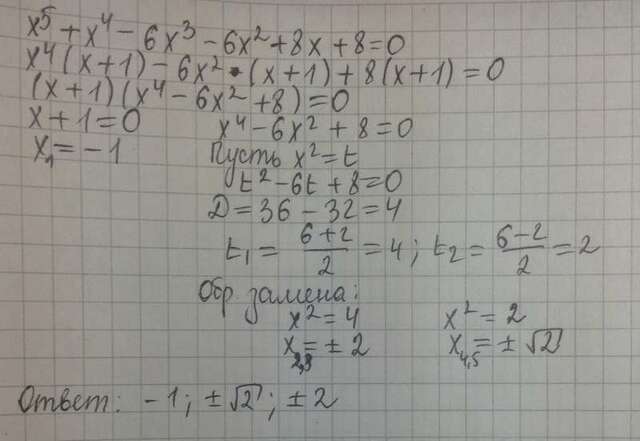 x⁵ + x⁴ - 6x³ - 6x² + 8x + 8 = 0
x⁴(x+1) - 6x² · (x+1) + 8(x+1) = 0
(x+1)(x⁴ - 6x² + 8) = 0
x + 1 = 0 x⁴ - 6x² + 8 = 0
x₁ = -1 Пусть x² = t
t² - 6t + 8 = 0
D = 36 - 32 = 4
t₁ = (6+2)/2 = 4; t₂ = (6-2)/2 = 2
Обр замена:
x² = 4 x² = 2
x₂,₃ = ± 2 x₄,₅ = ± √2
Ответ: -1; ±√2; ± 2